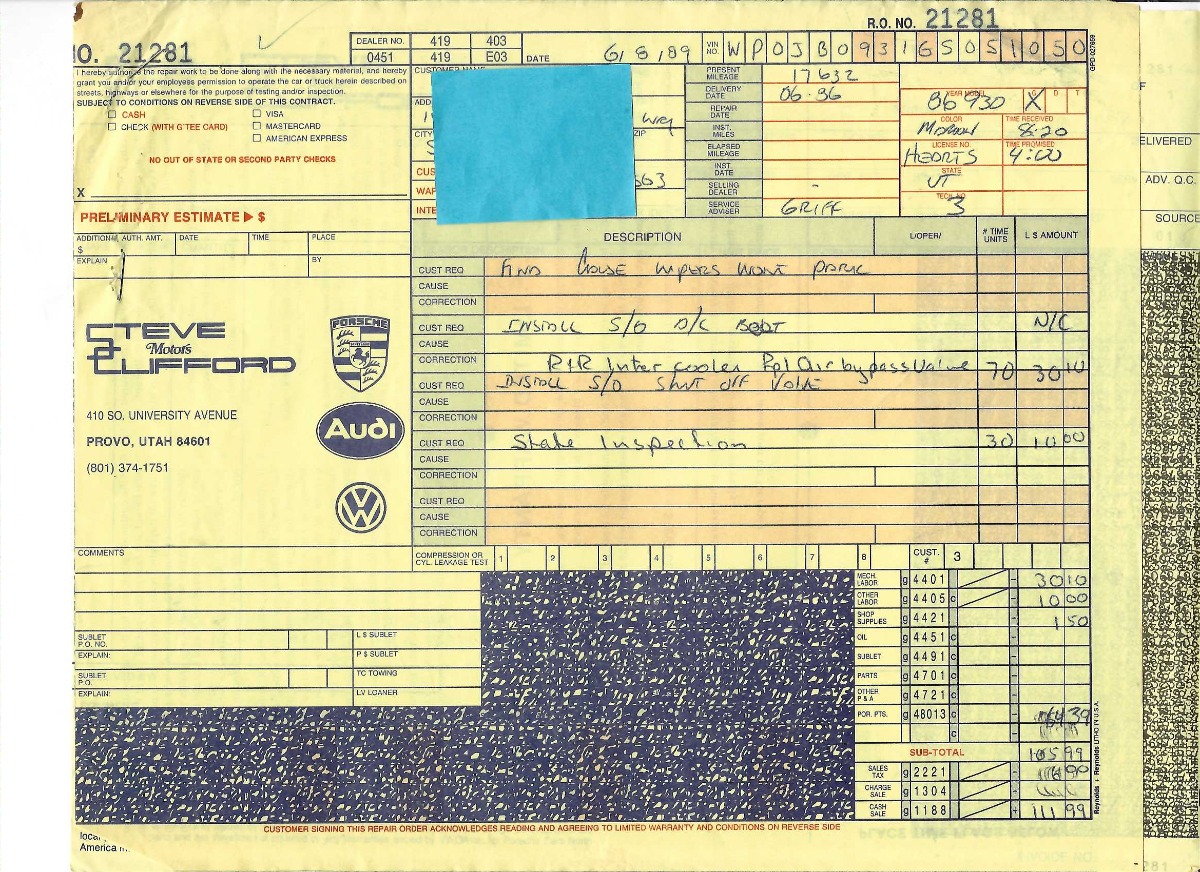 R.O. NO. 21281
NO. 21281
DEALER NO. 419 403
0451 419 E03
DATE 6/8/89
VIN NO. WPOJB0931GS051050
GPD-027859
I hereby authorize the repair work to be done along with the necessary material, and hereby
grant you and/or your employees permission to operate the car or truck herein described on
streets, highways or elsewhere for the purpose of testing and/or inspection.
SUBJECT TO CONDITIONS ON REVERSE SIDE OF THIS CONTRACT.
CASH VISA
CHECK (WITH G'TEE CARD) MASTERCARD
AMERICAN EXPRESS
NO OUT OF STATE OR SECOND PARTY CHECKS
X
PRELIMINARY ESTIMATE $
ADDITIONAL AUTH. AMT. DATE TIME PLACE
$
EXPLAIN BY
CUSTOMER NAME
ADD
Way
CITY ZIP
S
CUS 563
WAR
INTE
PRESENT MILEAGE 17632
DELIVERY DATE
REPAIR DATE
INST. MILES
ELAPSED MILEAGE
INST. DATE
SELLING DEALER -
SERVICE ADVISER GRIFF
YEAR MODEL 86 930 G X D T
COLOR TIME RECEIVED 8:20
LICENSE NO. HEORTS TIME PROMISED 4:00
STATE UT
TECH. NO. 3
DESCRIPTION L/OPER/ # TIME UNITS L $ AMOUNT
CUST REQ FIND CAUSE WIPERS WONT PARK
CAUSE
CORRECTION
CUST REQ INSTALL S/O BOOT N/C
CAUSE
CORRECTION R+R Inter cooler Air bypass Valve 70 30 10
CUST REQ INSTALL S/O SHUT OFF VALVE
CAUSE
CORRECTION
CUST REQ State Inspection 30 10 00
CAUSE
CORRECTION
CUST REQ
CAUSE
CORRECTION
STEVE
Motors
CLIFFORD
PORSCHE
Audi
VW
410 SO. UNIVERSITY AVENUE
PROVO, UTAH 84601
(801) 374-1751
COMMENTS
COMPRESSION OR CYL. LEAKAGE TEST 1 2 3 4 5 6 7 8
CUST. # 3
MECH. LABOR g 4401 - 30 10
OTHER LABOR g 4405 c - 10 00
SHOP SUPPLIES g 4421 1 50
OIL g 4451 c
SUBLET g 4491 c
PARTS g 4701 c
OTHER P & A g 4721 c
POR. PTS. g 48013 c 64 39
c
SUB-TOTAL 105 99
SALES TAX g 2221 -
CHARGE SALE g 1304
CASH SALE g 1188 + 111 99
SUBLET P.O. NO. L $ SUBLET
EXPLAIN: P $ SUBLET
SUBLET P.O. TC TOWING
EXPLAIN: LV LOANER
CUSTOMER SIGNING THIS REPAIR ORDER ACKNOWLEDGES READING AND AGREEING TO LIMITED WARRANTY AND CONDITIONS ON REVERSE SIDE
Reynolds + Reynolds LITHO IN U.S.A.
local
America
ELIVERED
ADV. Q.C.
SOURCE